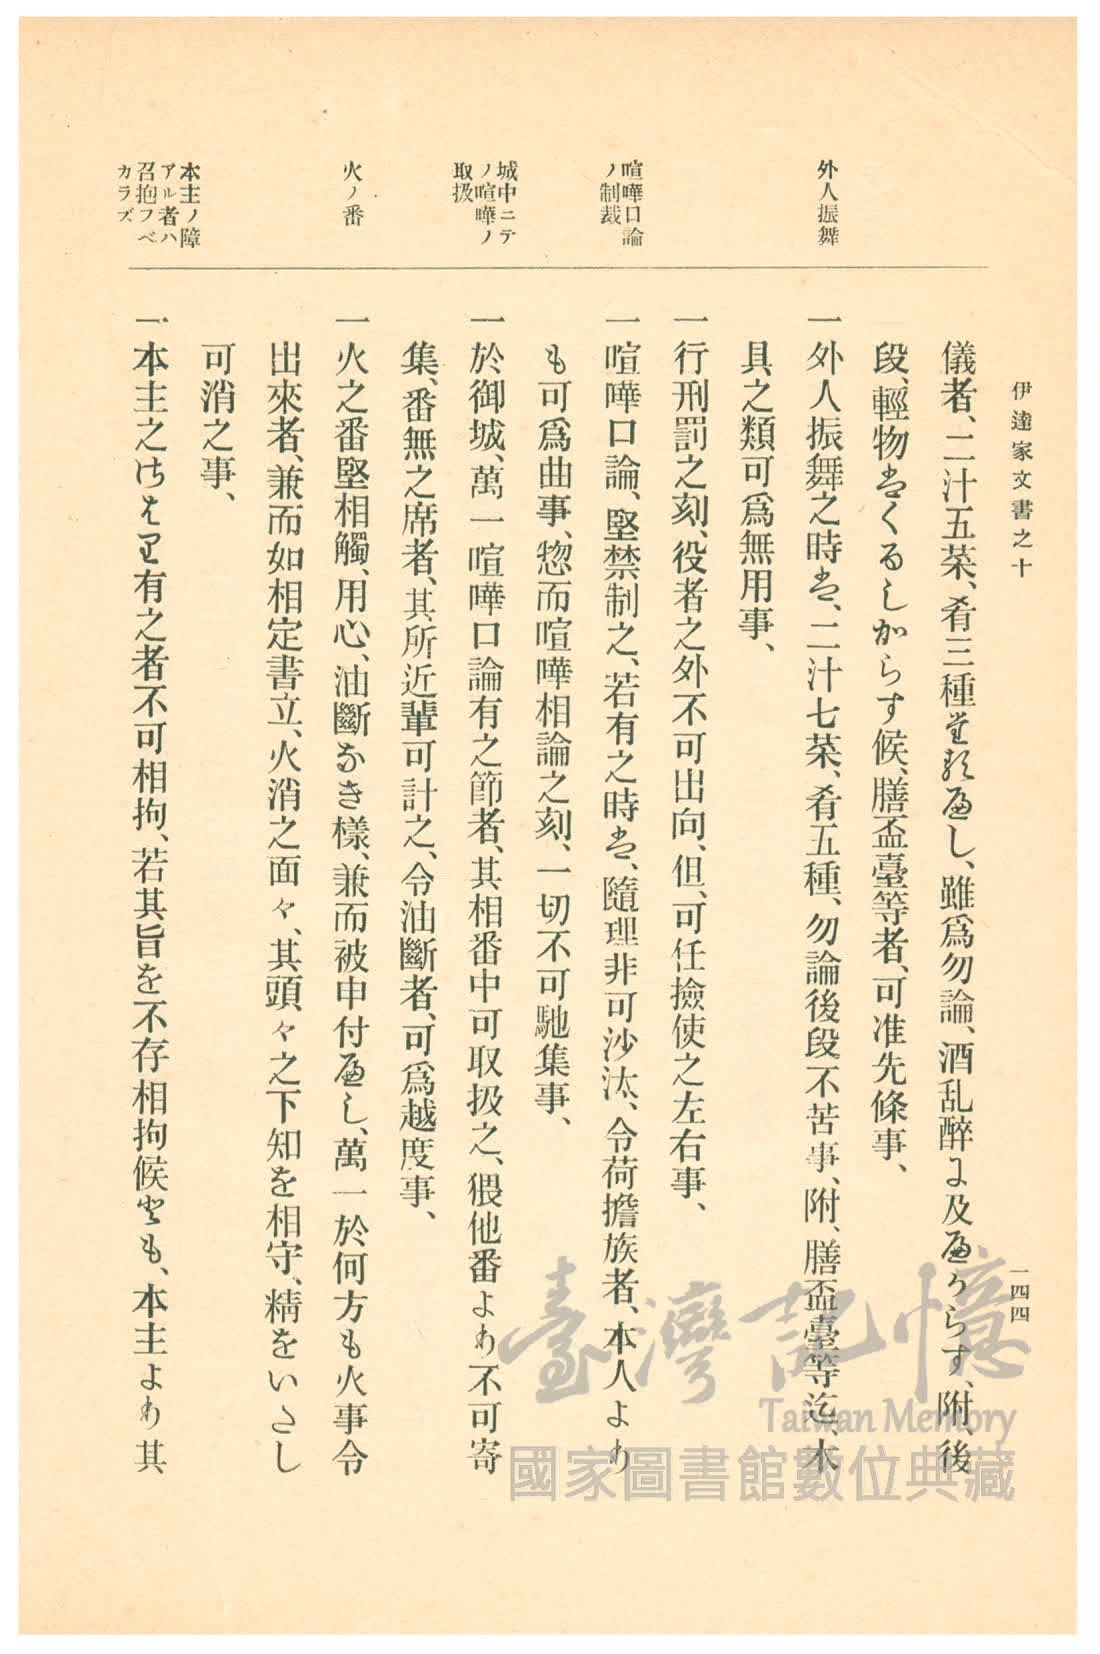 伊達家文書之十
一四四
儀者、二汁五菜、肴三種たるへし、雖爲勿論、酒乱醉に及へからす、附、後
段、輕物はくるしからす候、膳盃臺等者、可准先條事、
外人振舞
一外人振舞之時は、二汁七菜、肴五種、勿論後段不苦事、附、膳盃臺等迄、木
具之類可爲無用事、
一行刑罰之刻、役者之外不可出向、但、可任撿使之左右事、
喧嘩口論
ノ制裁
一喧嘩口論、堅禁制之、若有之時は、隨理非可沙汰、令荷擔族者、本人より
も可爲曲事、惣而喧嘩相論之刻、一切不可馳集事、
城中ニテ
ノ喧嘩ノ
取扱
一於御城、萬一喧嘩口論有之節者、其相番中可取扱之、猥他番より不可寄
集、番無之席者、其所近輩可計之、令油斷者、可爲越度事、
火ノ番
一火之番堅相觸、用心、油斷なき樣、兼而被申付へし、萬一於何方も火事令
出來者、兼而如相定書立、火消之面々、其頭々之下知を相守、精をいたし
可消之事、
本主ノ障
アル者ハ
召抱フベ
カラズ
一本主之けはり有之者不可相拘、若其旨を不存相拘候とも、本主より其
臺灣記憶
Taiwan Memory
國家圖書館數位典藏